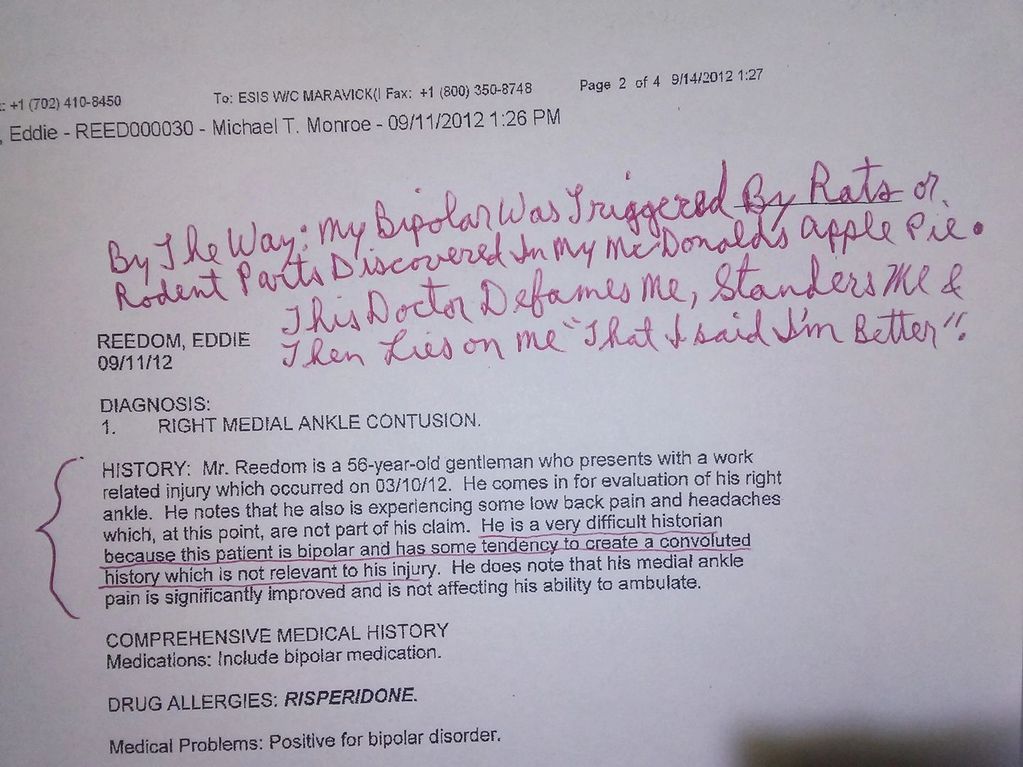 : +1 (702) 410-8450 To: ESIS W/C MARAVICK(I Fax: +1 (800) 350-8748 Page 2 of 4 9/14/2012 1:27
, Eddie - REED000030 - Michael T. Monroe - 09/11/2012 1:26 PM
By The Way: My Bipolar Was Triggered By Rats or
Rodent Parts Discovered In My McDonald's Apple Pie.
This Doctor Defames Me, Slanders Me &
Then Lies on Me "That I said I'm Better".
REEDOM, EDDIE
09/11/12
DIAGNOSIS:
1. RIGHT MEDIAL ANKLE CONTUSION.
HISTORY: Mr. Reedom is a 56-year-old gentleman who presents with a work
related injury which occurred on 03/10/12. He comes in for evaluation of his right
ankle. He notes that he also is experiencing some low back pain and headaches
which, at this point, are not part of his claim. He is a very difficult historian
because this patient is bipolar and has some tendency to create a convoluted
history which is not relevant to his injury. He does note that his medial ankle
pain is significantly improved and is not affecting his ability to ambulate.
COMPREHENSIVE MEDICAL HISTORY
Medications: Include bipolar medication.
DRUG ALLERGIES: RISPERIDONE.
Medical Problems: Positive for bipolar disorder.